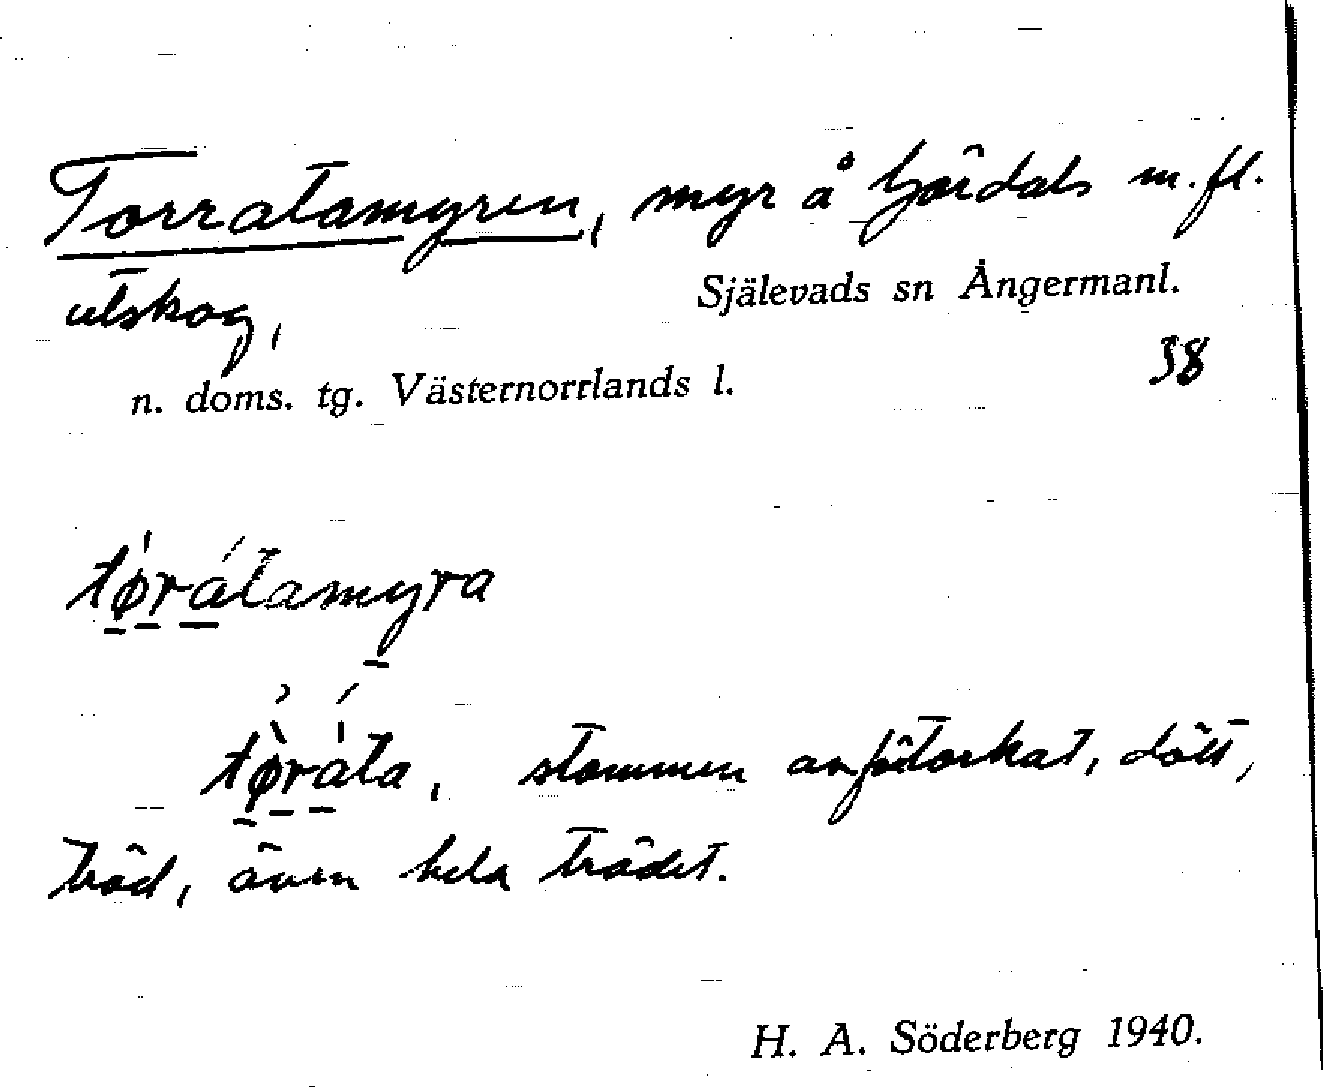 Torratamyren, myr å Gördals m.fl.
utskog,
Själevads sn Ångermanl.
n. doms. tg. Västernorrlands l.
38
tøratamyra
tørata, stammen av förtorkat, dött,
träd, även hela trädet.
H. A. Söderberg 1940.